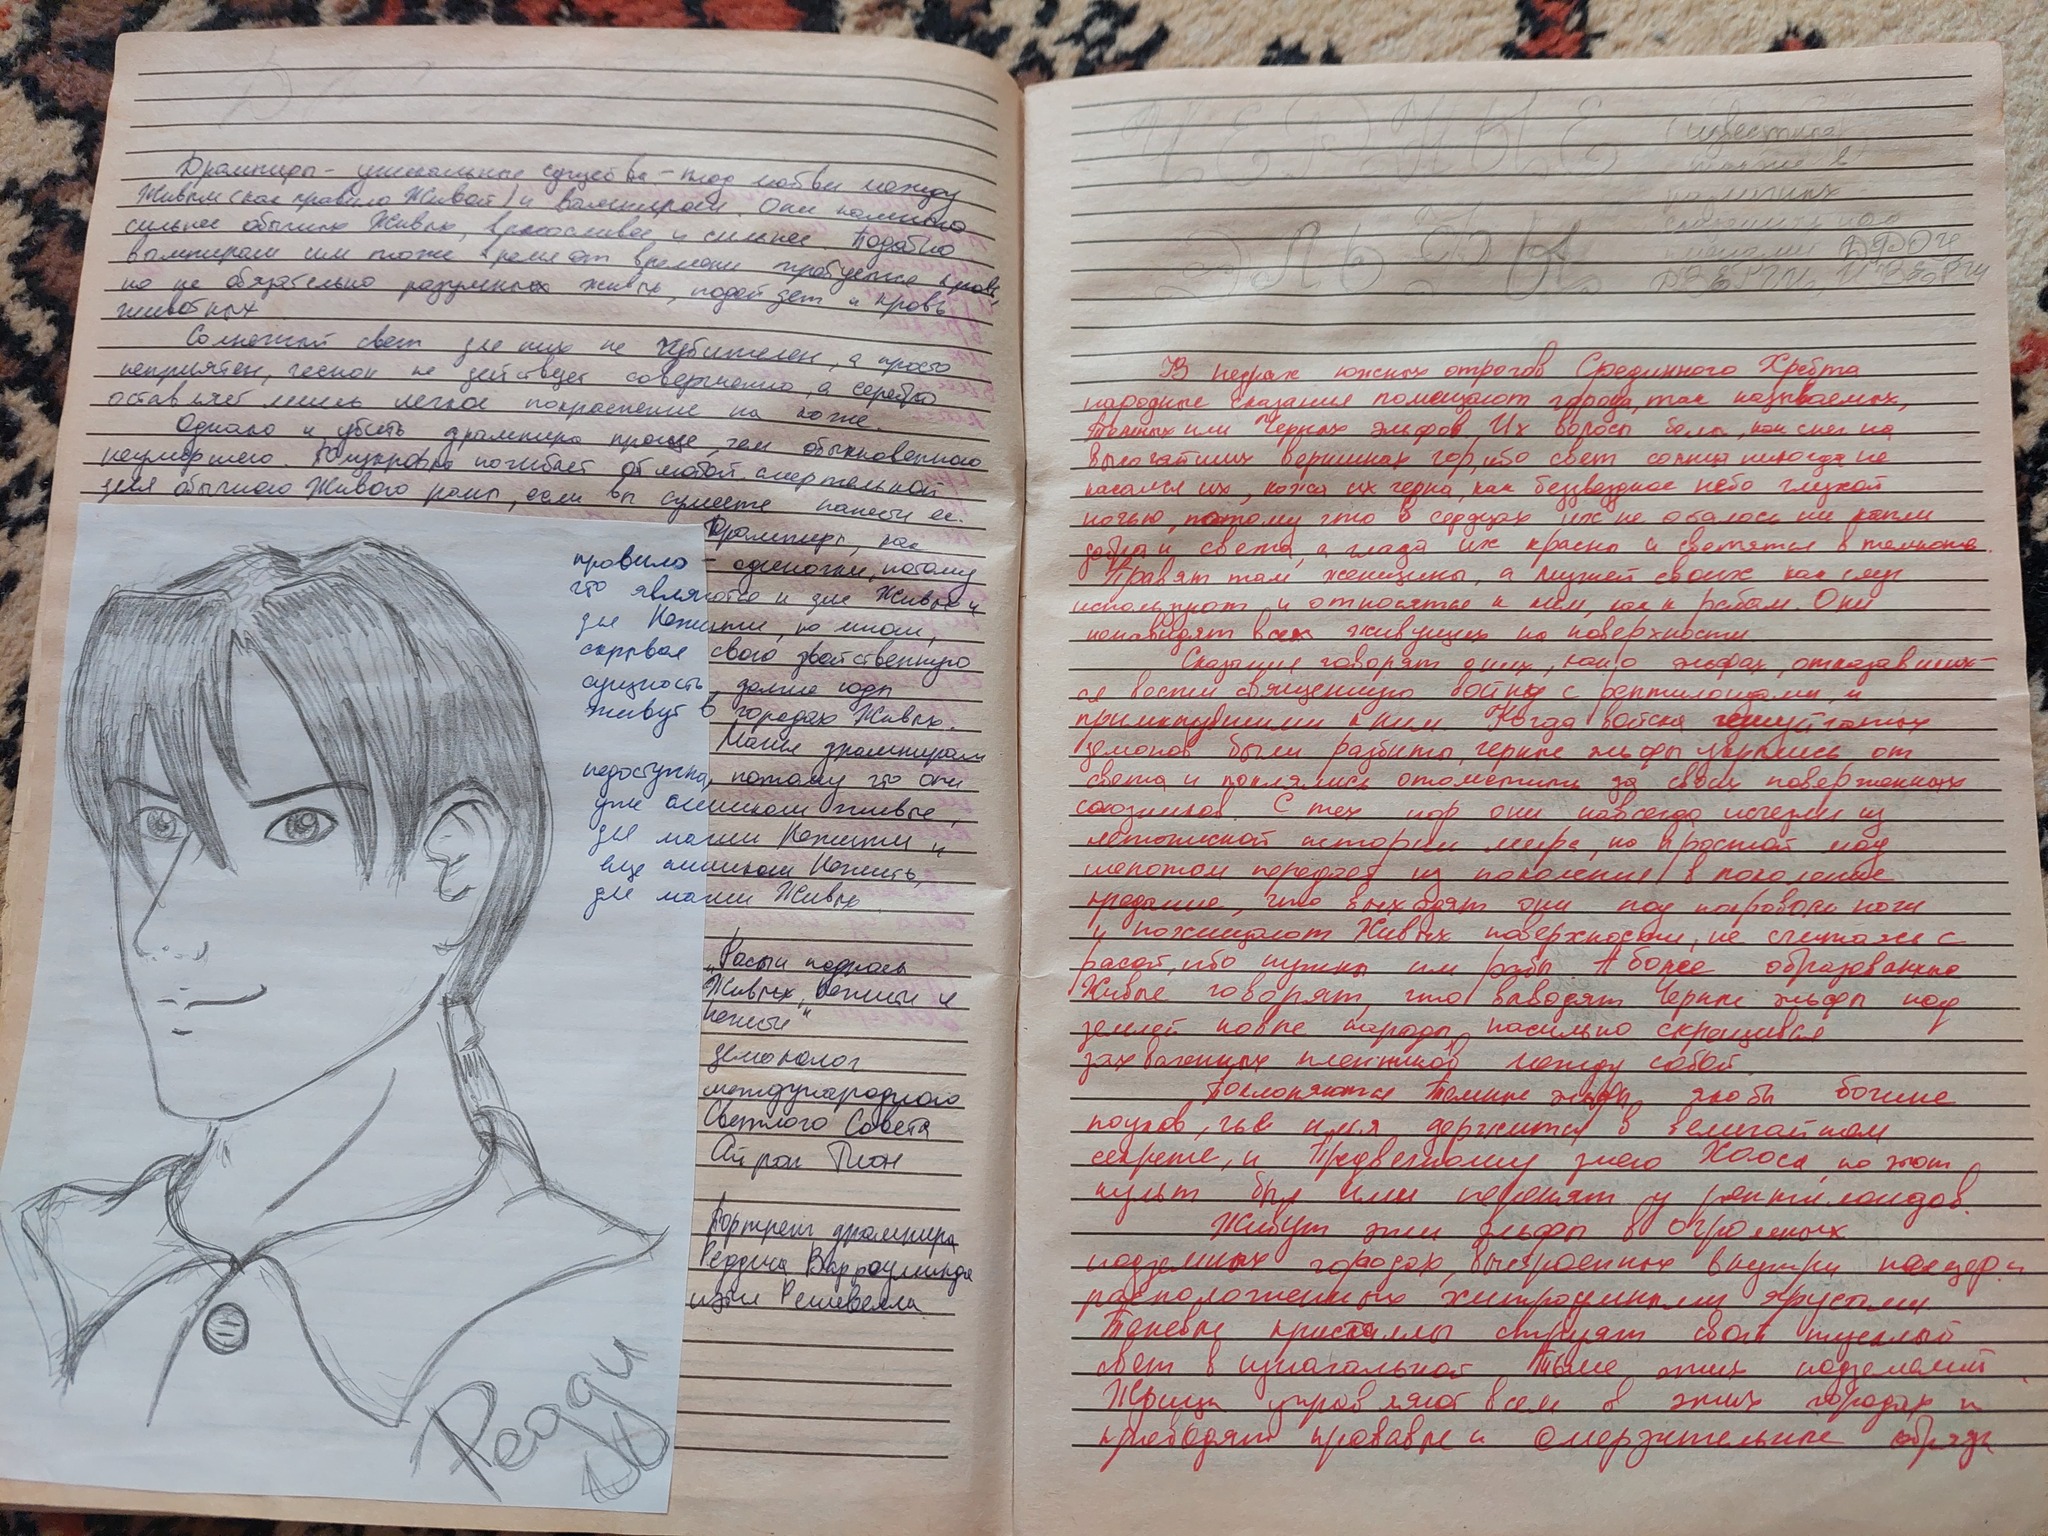 Дрампиры - уникальные существа - плод любви между
Живым (как правило Живой) и вампиром. Они намного
сильнее обычных Живых, выносливее и сильнее. Подобно
вампирам им тоже время от времени требуется кровь,
но не обязательно разумных живых, подойдет и кровь
животных.
Солнечный свет для них не губителен, а просто
неприятен, чеснок не действует совершенно, а серебро
оставляет лишь легкое покраснение на коже.
Однако и убить дрампира проще, чем обыкновенного
неумершего. погибает от любой смертельной
для обычного Живого раны, если вы сумеете нанести ее.
Дрампиры, как
правило - одиночки, потому
что являются и для Живых и
для Нежити, но иногда,
скрывая свою двойственную
сущность, долгие годы
живут в городах Живых.
Магия дрампирам
недоступна, потому что они
уже слишком живые,
для магии Нежити и
еще слишком Нежить,
для магии Живых.
"Расы и подрасы
Живых, нежити и
нечисти"
демонолог
международного
Светлого Совета
Айрон Тион
Портрет дрампира
Реддина Варроуминда
из Решевелла
Peggy
ЧЕРНЫЕ
ЭЛЬФЫ
(известные
также в
различных
под
именами ДРОУ,
В недрах южных отрогов Срединного Хребта
народные сказания помещают города, так называемых,
Темных или Черных эльфов. Их волосы белы, как снег на
высочайших вершинах гор, ибо свет солнца никогда не
касался их, кожа их черна, как беззвездное небо глухой
ночью, потому что в сердцах их не осталось ни капли
добра и света, а глаза их красны и светятся в темноте.
Правят там женщины, а мужей своих как слуг
используют и относятся к ним, как к рабам. Они
ненавидят всех живущих на поверхности.
Сказания говорят о них, как о эльфах, отказавших-
ся вести священную войну с рептилоидами и
примкнувшими к ним. Когда войска чешуйчатых
демонов были разбиты, черные эльфы укрылись от
света и поклялись отомстить за своих поверженных
союзников. С тех пор они навсегда исчезли из
летописной истории мира, но простой люд
шепотом передает из поколения в поколение
предание, что выходят они под покровом ночи
и похищают Живых поверхности, не считаясь с
расой, ибо нужны им рабы. А более образованные
Живые говорят, что выводят Черные эльфы под
землей новые народы, насильно скрещивая
захваченных пленников между собой.
Поклоняются Темные эльфы якобы богине
пауков, чье имя держится в величайшем
секрете, и Предвечному змею Хаоса, но этот
культ был ими перенят у рептилоидов.
Живут эти эльфы в огромных
подземных городах, выстроенных внутри пещер и
расположенных хитроумными ярусами.
Теневые кристаллы струят свой тусклый
свет в изначальной тьме этих подземелий.
Жрицы управляют всем в этих городах и
проводят кровавые и омерзительные обряды